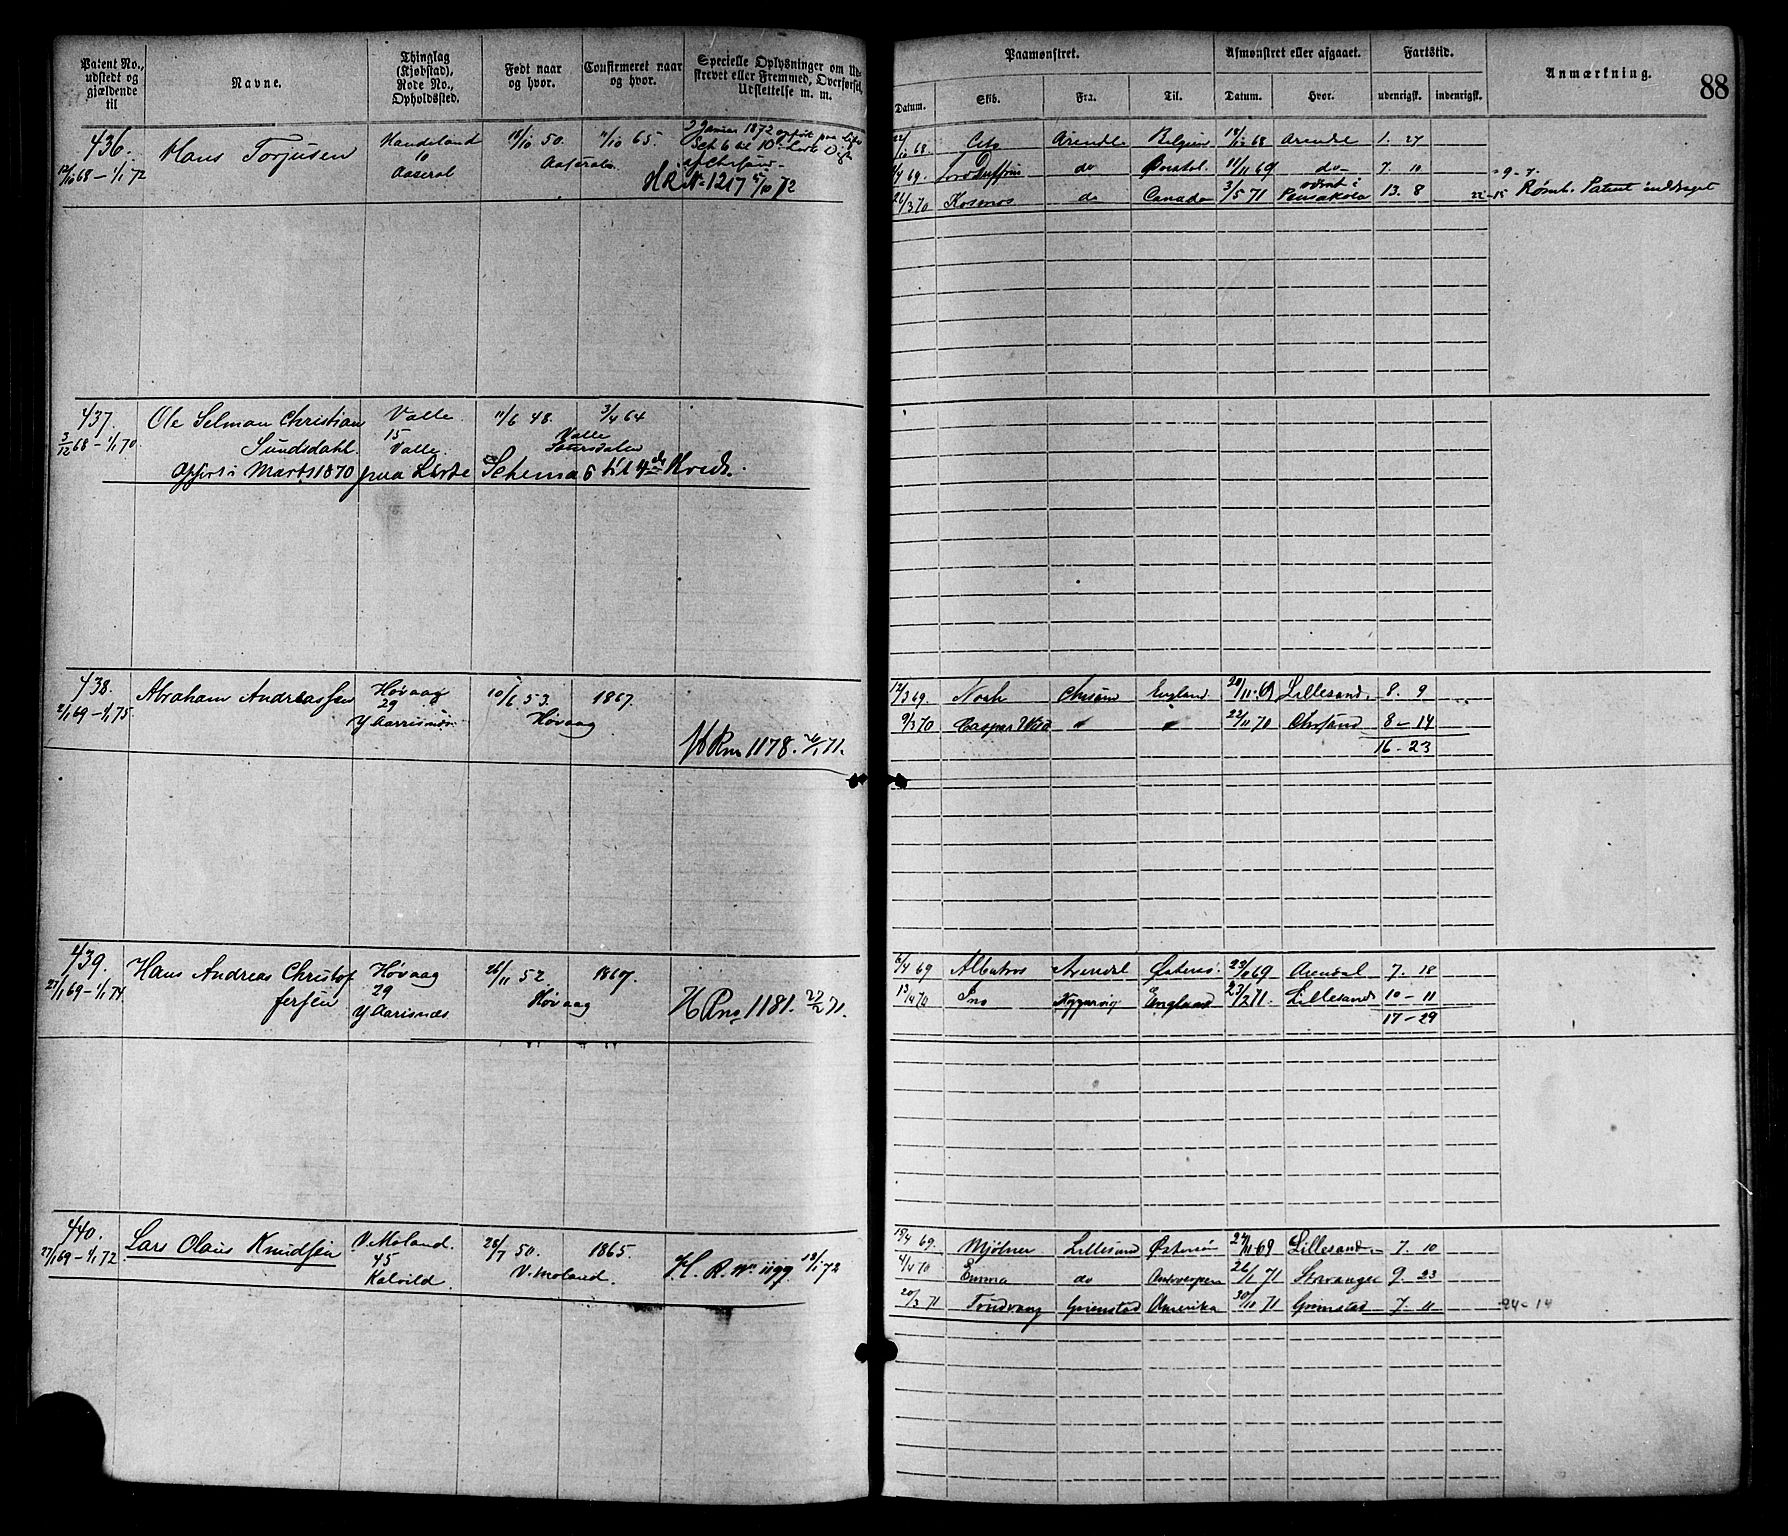 Patent No., udstedt og gjældende til
Navne.
Thinglag (Kjøbstad), Rode No., Opholdssted.
Født naar og hvor.
Confirmeret naar og hvor.
Specielle Oplysninger om Udskrevet eller Fremmed, Overførsel, Udslettelse m. m.
Paamønstret.
Afmønstret eller afgaaet.
Fartstid.
Anmærkning.
88
Datum.
Skib.
Fra.
Til.
Datum.
Hvor.
udenrigsk.
indenrigsk.
436.
12/10 68 – 1/1 72
Hans Torjusen
10
Aaseral
18/10 50.
11/10 65.
Aaseral
2 Januar 1872 opført paa
Sch 6 til 10de
HR No 1217 5/10 72
22/10 68. Cito Arendl Belgien 18/12 68 Arendl 1. 27
do 11/11 69 do 7. 10
26/3 70 Kosmos do Canada 3/5 71 rømt i Pensakola 13. 8
Rømt. Patent inddraget
437.
3/12 68 – 1/1 70.
Ole Selman Christian
Sundsdahl.
Valle
15
Valle
11/6 48.
3/4 64
Valle
Sætersdalen
Opført i Marts 1870 paa Lærde Schema 6 til 4de Kreds.
438.
2/1 69 – 1/1 75
Abraham Andreassen
Høvaag
29
10/6 53.
Høvaag
1867.
HR no 1178. 26/1 71.
12/3 69. Noah Chrsand England 20/11 69 Lillesand. 8. 9
9/3 70 " " 22/11 70 Chrsand 8 – 14
16 – 23
439.
27/1 69 – 1/1 74
Hans Andreas Christof
fersen
Høvaag
29
Y Aarisnæs
26/11 52.
Høvaag
1867.
HR no 1181. 27/2 71.
6/4 69 Albatros Arendal Østersø. 23/10 69 Arendal 7. 18
13/4 70 Sno England 23/2 71. Lillesand 10 – 11
17 – 29
440.
27/1 69 – 1/1 72
Lars Olaus Knudsen
V. Moland.
45
Kalvild
28/7 50.
V. Moland.
1865.
H. R. No 1199 12/1 72
15/4 69. Mjølner Lillesand Østersøn 27/11 69 Lillesand. 7. 10
4/4 70 Emma do Antverpen 26/1 71 Stavanger 9. 23
20/3 71 Tordvang Grimstad Amerika 30/10 71 Grimstad 7. 11
24 – 14